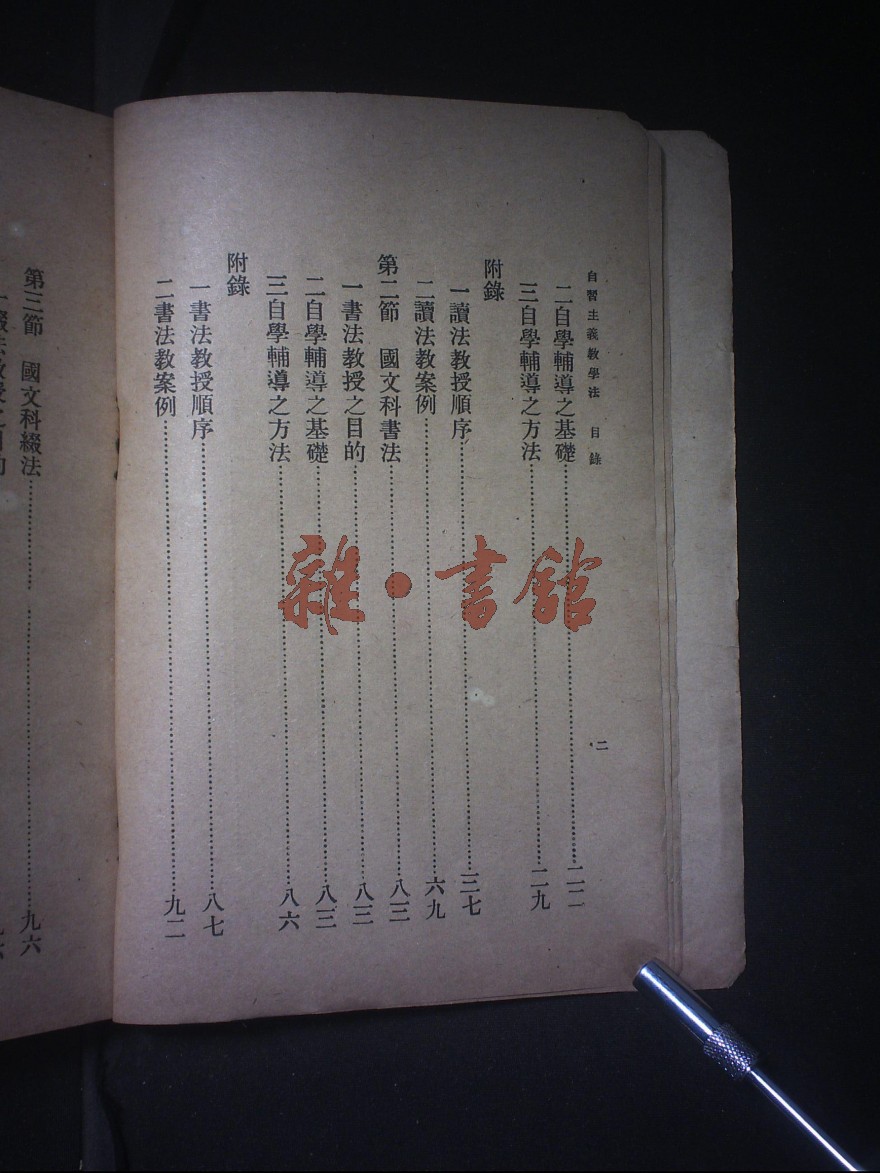 自習主義教學法 目錄 二
二自學輔導之基礎……二二
三自學輔導之方法……二九
附錄
一讀法教授順序……三七
二讀法教案例……六九
第二節 國文科書法……八三
一書法教授之目的……八三
二自學輔導之基礎……八三
三自學輔導之方法……八六
附錄
一書法教授順序……八七
二書法教案例……九二
第三節 國文科綴法……九六
一綴法教授之目的……九六
雜·書館